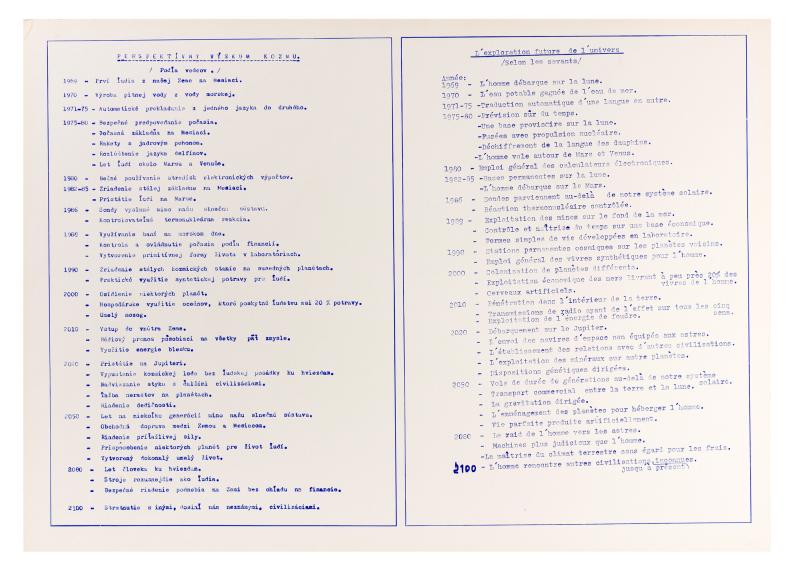 PERSPEKTÍVNY VÝSKUM KOZMU.
/ Podľa vedcov. /
1969 - Prví ľudia z našej Zeme na Mesiaci.
1970 - Výroba pitnej vody z vody morskej.
1971-75 - Automatické prekladanie z jedného jazyka do druhého.
1975-80 - Bezpečné predpovedanie počasia.
- Dočasná základňa na Mesiaci.
- Rakety s jadrovým pohonom.
- Rozlúštenie jazyka delfínov.
- Let ľudí okolo Marsu a Venuše.
1980 - Bežné používanie stredísk elektronických výpočtov.
1982-85 - Zriadenie stálej základne na Mesiaci.
- Pristátie ľudí na Marse.
1986 - Sondy vyslané mimo našu slnečnú sústavu.
- Kontrolovateľná termonukleárna reakcia.
1989 - Využívanie baní na morskom dne.
- Kontrola a ovládnutie počasia podľa financií.
- Vytvorenie primitívnej formy života v laboratóriach.
1990 - Zriadenie stálych kozmických staníc na susedných planétach.
- Praktické využitie syntetickej potravy pre ľudí.
2000 - Osídlenie niektorých planét.
- Hospodárske využitie oceánov, ktoré poskytnú ľudstvu asi 20 % potravy.
- Umelý mozog.
2010 - Vstup do vnútra Zeme.
- Rádiový prenos pôsobiaci na všetky päť zmysle.
- Využitie energie blesku.
2020 - Pristátie na Jupiteri.
- Vypustenie kozmickej lode bez ľudskej posádky ku hviezdam.
- Nadviazanie styku s ďalšími civilizáciami.
- Ťažba nerastov na planétach.
- Riadenie dedičnosti.
2050 - Let na niekoľko generácií mimo našu slnečnú sústavu.
- Obchodná doprava medzi Zemou a Mesiacom.
- Riadenie príťažlivej sily.
- Prispôsobenie niektorých planét pre život ľudí.
- Vytvorený dokonalý umelý život.
2080 - Let človeku ku hviezdam.
- Stroje rozumnejšie ako ľudia.
- Bezpečné riadenie podnebia na Zemi bez ohľadu na financie.
2100 - Stretnutie s inými, dosiaľ nám neznámymi, civilizáciami.
L'exploration future de l'univers
/Selon les savants/
Année:
1969 - L'homme débarque sur la lune.
1970 - L'eau potable gagnée de l'eau de mer.
1971-75 -Traduction automatique d'une langue en autre.
1975-80 -Prévision sûr du temps.
-Une base provisoire sur la lune.
-Fusées avec propulsion nucléaire.
-Déchiffrement de la langue des dauphins.
-L'homme vole autour de Mars et Venus.
1980 - Emploi général des calculateurs électroniques.
1982-85 -Bases permanentes sur la lune.
-L'homme débarque sur le Mars.
1986 - Sondes parviennent au-delà de notre système solaire.
- Réaction thermonucléaire contrôlée.
1989 - Exploitation des mines sur le fond de la mer.
- Contrôle et maîtrise du temps sur une base économique.
- Formes simples de vie développées en laboratoire.
1990 - Stations permanentes cosmiques sur les planètes voisins.
- Emploi général des vivres synthétiques pour l'homme.
2000 - Colonisation de planètes différents.
- Exploitation économique des mers livrant à peu près 20% des vivres de l'homme.
- Cerveaux artificiels.
2010 - Pénétration dans l'intérieur de la terre.
- Transmissions de radio ayant de l'effet sur tous les cinq sens.
- Exploitation de l'énergie de foudre.
2020 - Débarquement sur le Jupiter.
- L'envoi des navires d'espace non équipés aux astres.
- L'établissement des relations avec d'autres civilisations.
- L'exploitation des minéraux sur autre planètes.
- Dispositions génétiques dirigées.
2050 - Vols de durée de générations au-delà de notre système solaire.
- Transport commercial entre la terre et la lune.
- La gravitation dirigée.
- L'emménagement des planètes pour héberger l'homme.
- Vie parfaite produite artificiellement.
2080 - Le raid de l'homme vers les astres.
- Machines plus judicieux que l'homme.
-La maîtrise du climat terrestre sans égard pour les frais.
2100 - L'homme rencontre autres civilisations inconnues jusqu'à présent